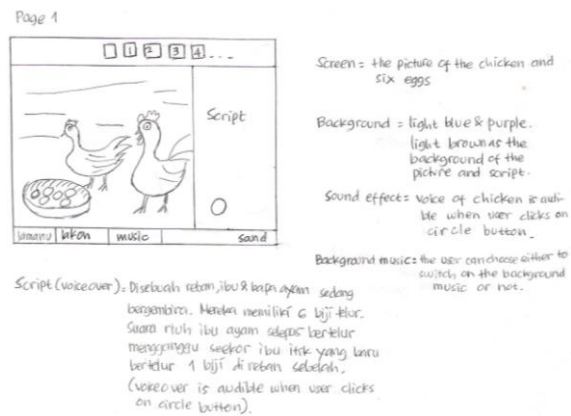 Page 1
1 2 3 4 ...
Script
lakon music sound
Screen = the picture of the chicken and
six eggs
Background = light blue & purple.
light brown as the
background of the
picture and script.
Sound effect = voice of chicken is audi-
ble when user clicks on
circle button.
Background music: the user can choose either to
switch on the background
music or not.
Script (voiceover) = Disebuah reban, ibu & bapa ayam sedang
bergembira. Mereka memiliki 6 biji telur.
Suara riuh ibu ayam selepas bertelur
mengganggu seekor ibu itik yang baru
bertelur 1 biji di reban sebelah.
(voiceover is audible when user clicks
on circle button).